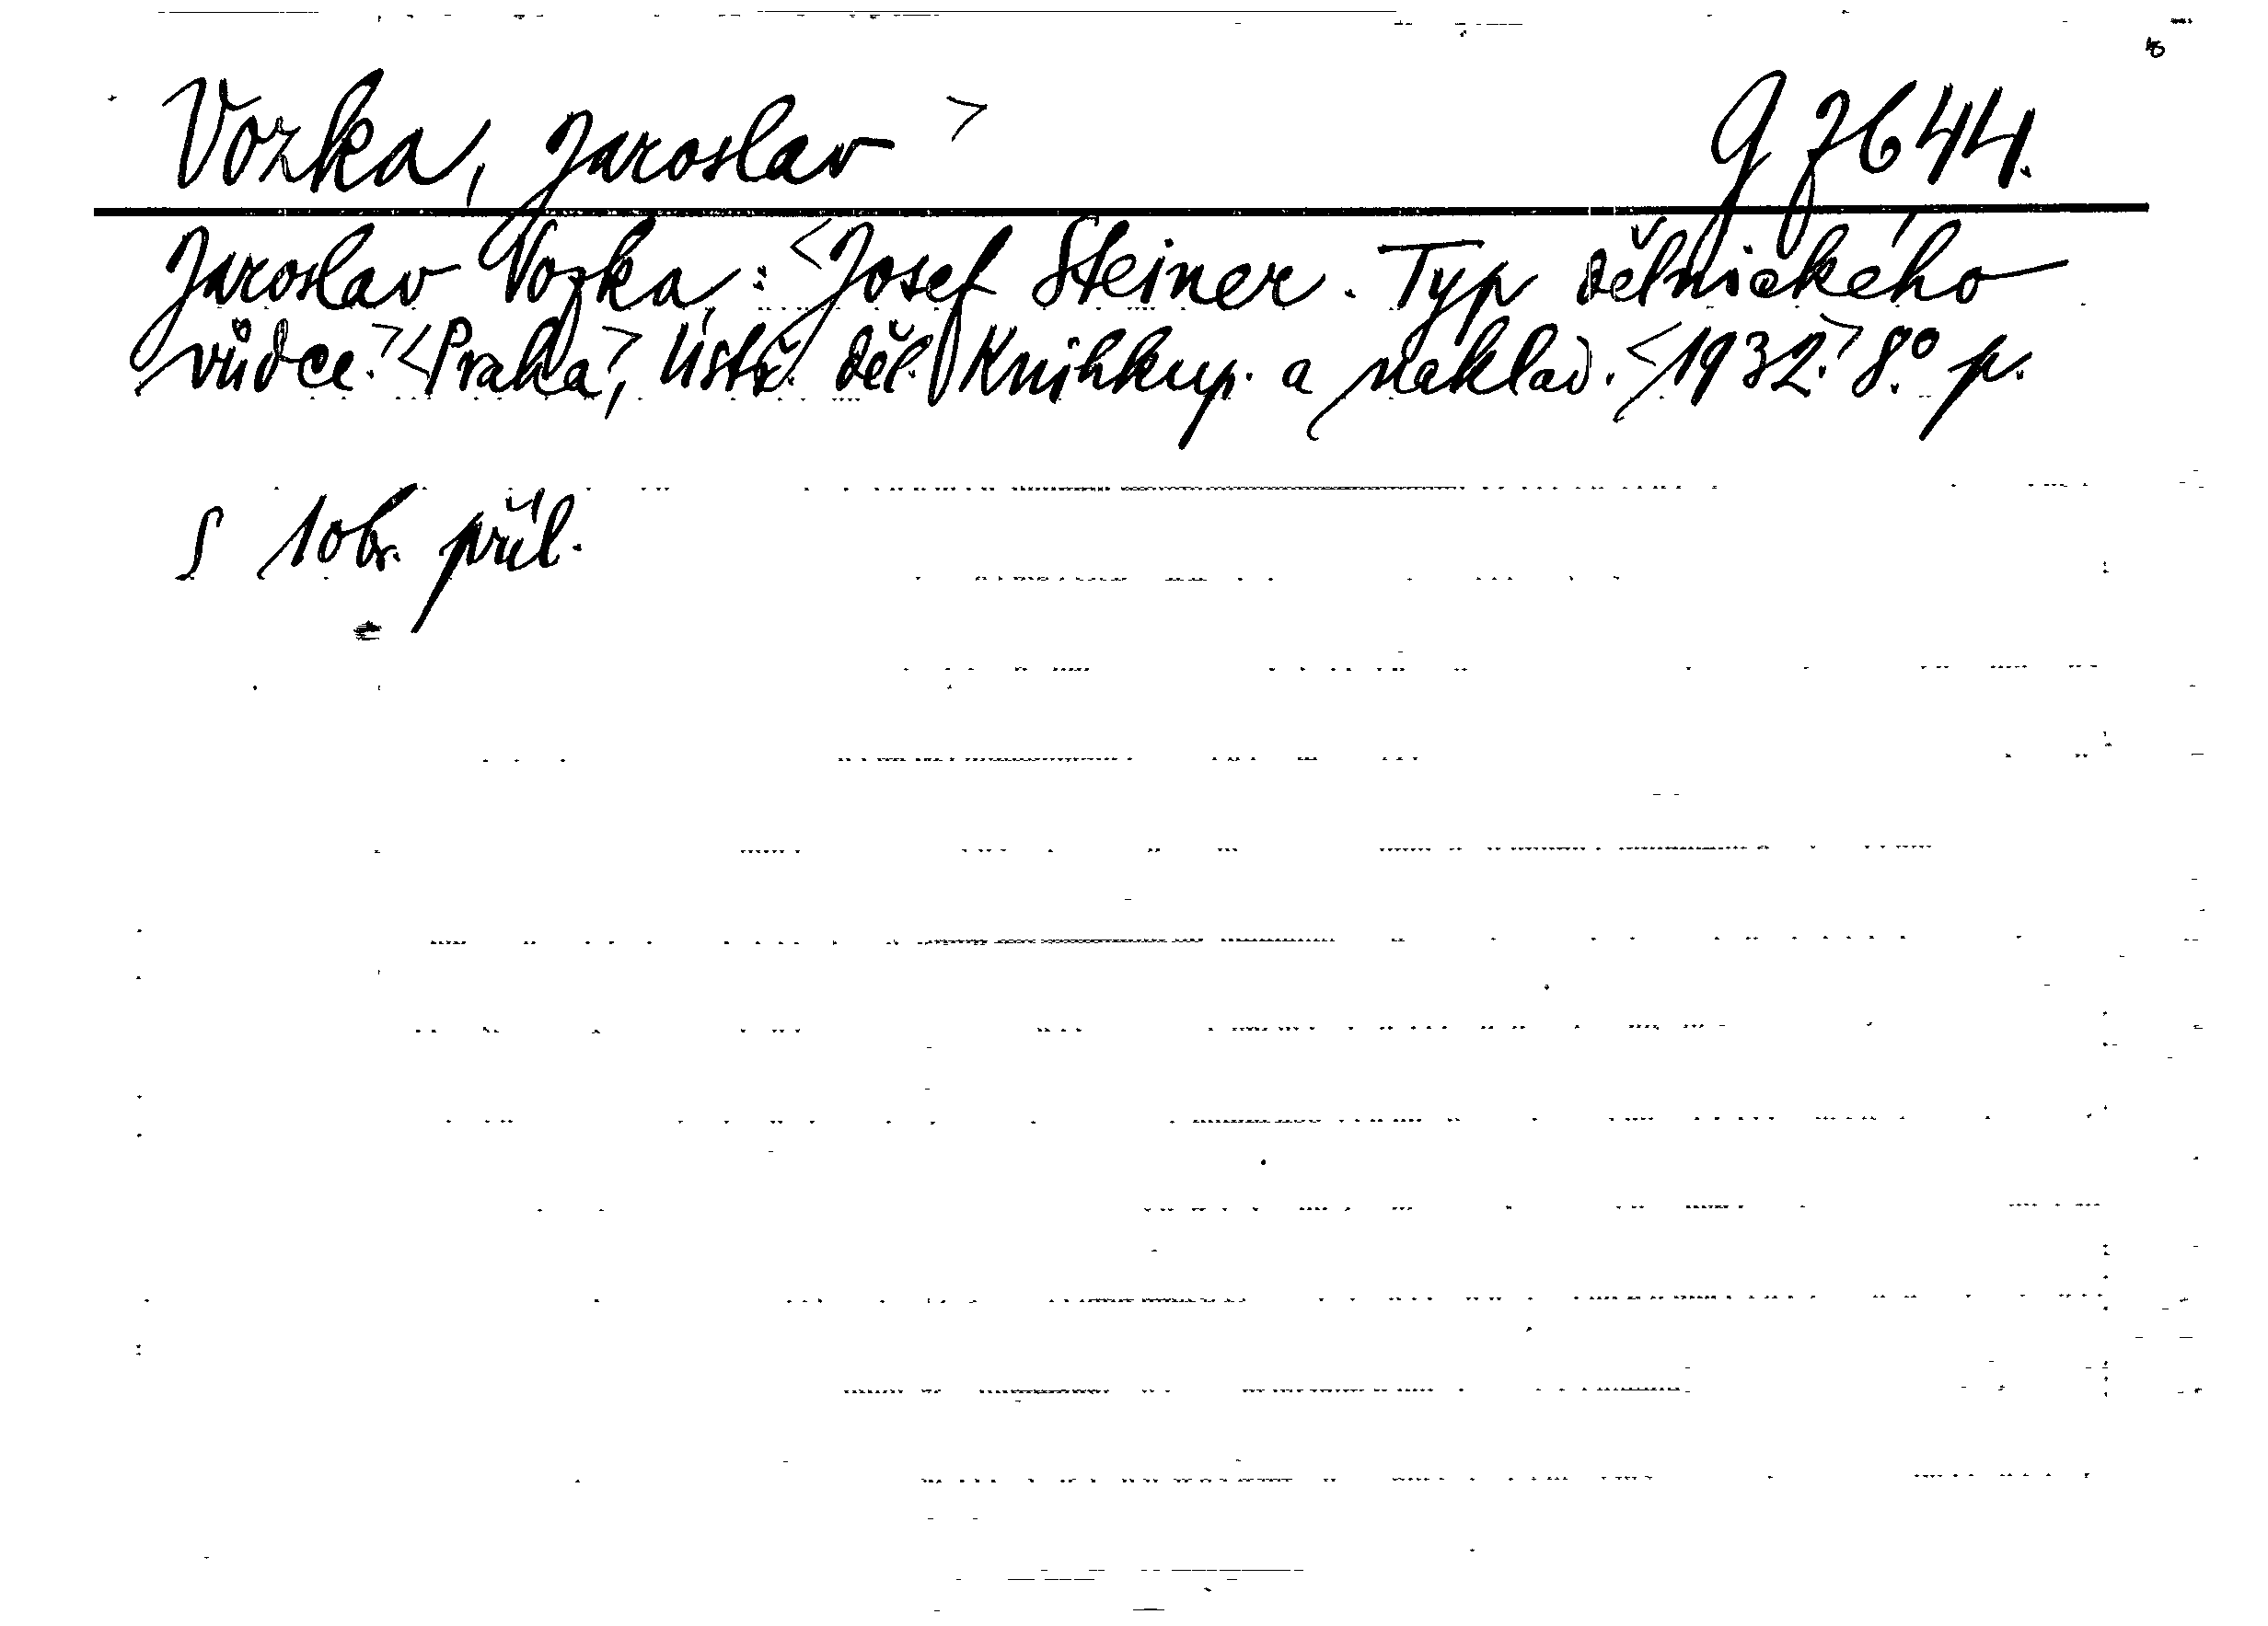 Vozka, Jaroslav > g 7644.
Jaroslav Vozka: <Josef Steiner. Typ dělnického
vůdce.> <Praha>, Ústř. děl. knihkup. a naklad. <1932.> 8.° p.
S 1 obr. příl.